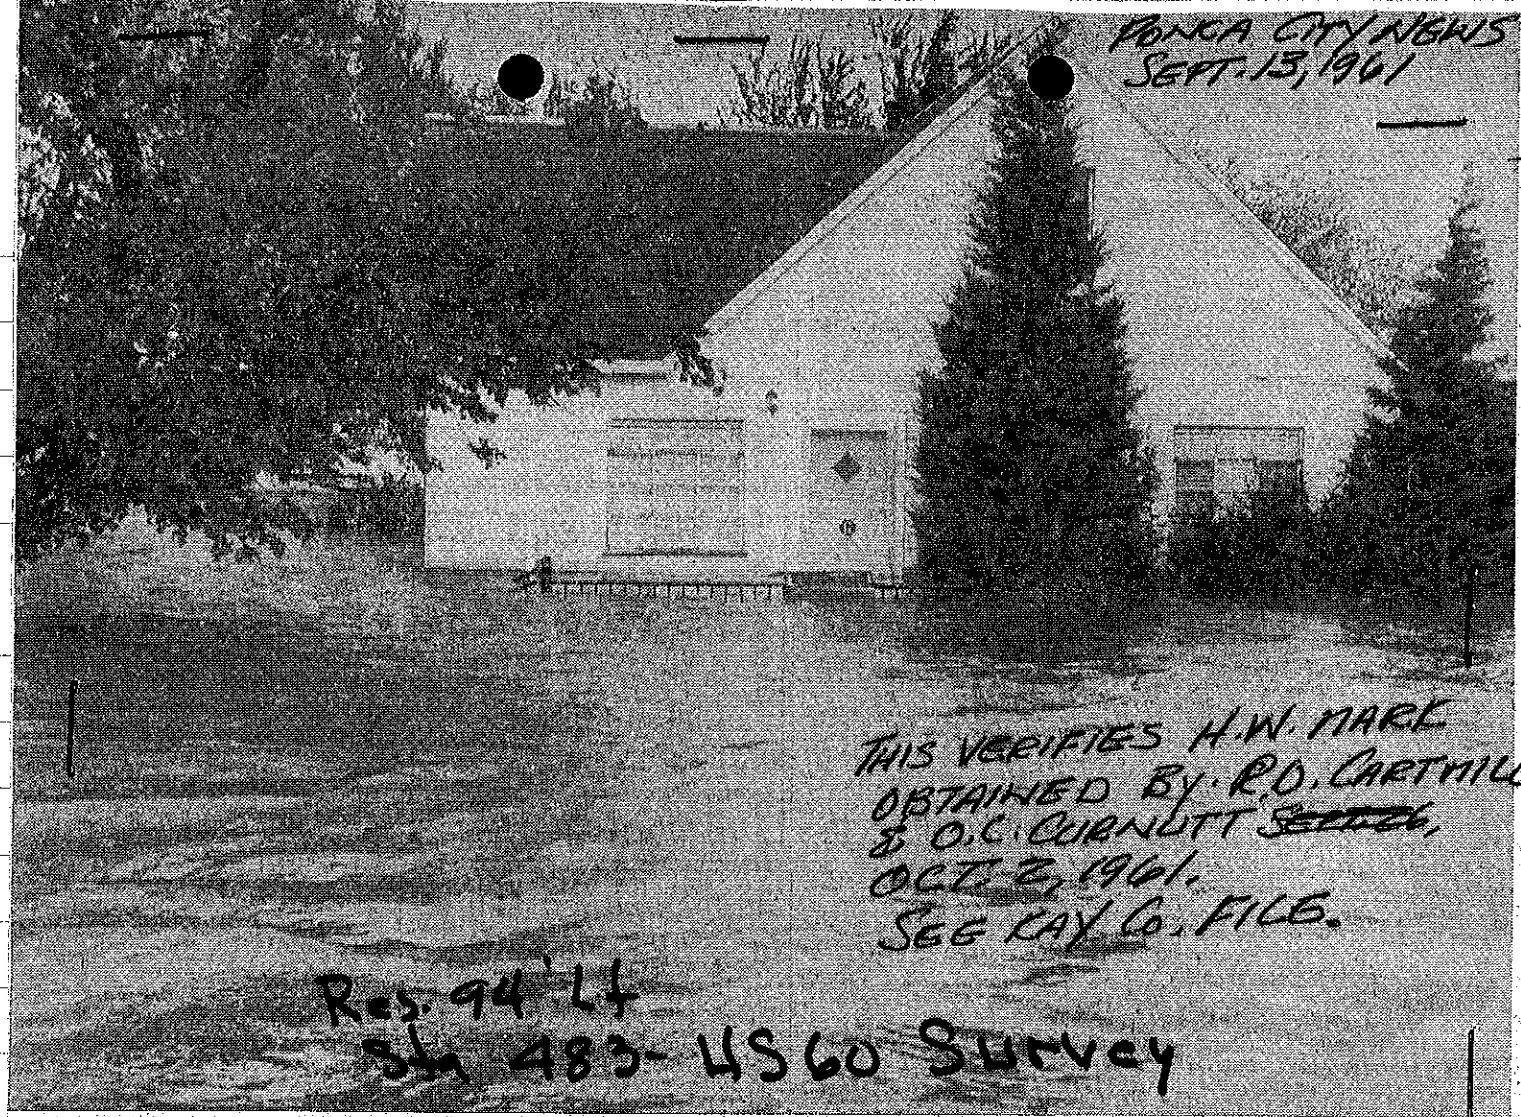 PONCA CITY NEWS
SEPT. 13, 1961
THIS VERIFIES H.W. MARK
OBTAINED BY R.O. CARTMILL
& O.C. CURNUTT
OCT. 2, 1961.
SEE KAY Co. FILE.
Res. 94' Lt
Sta 483- US60 Survey